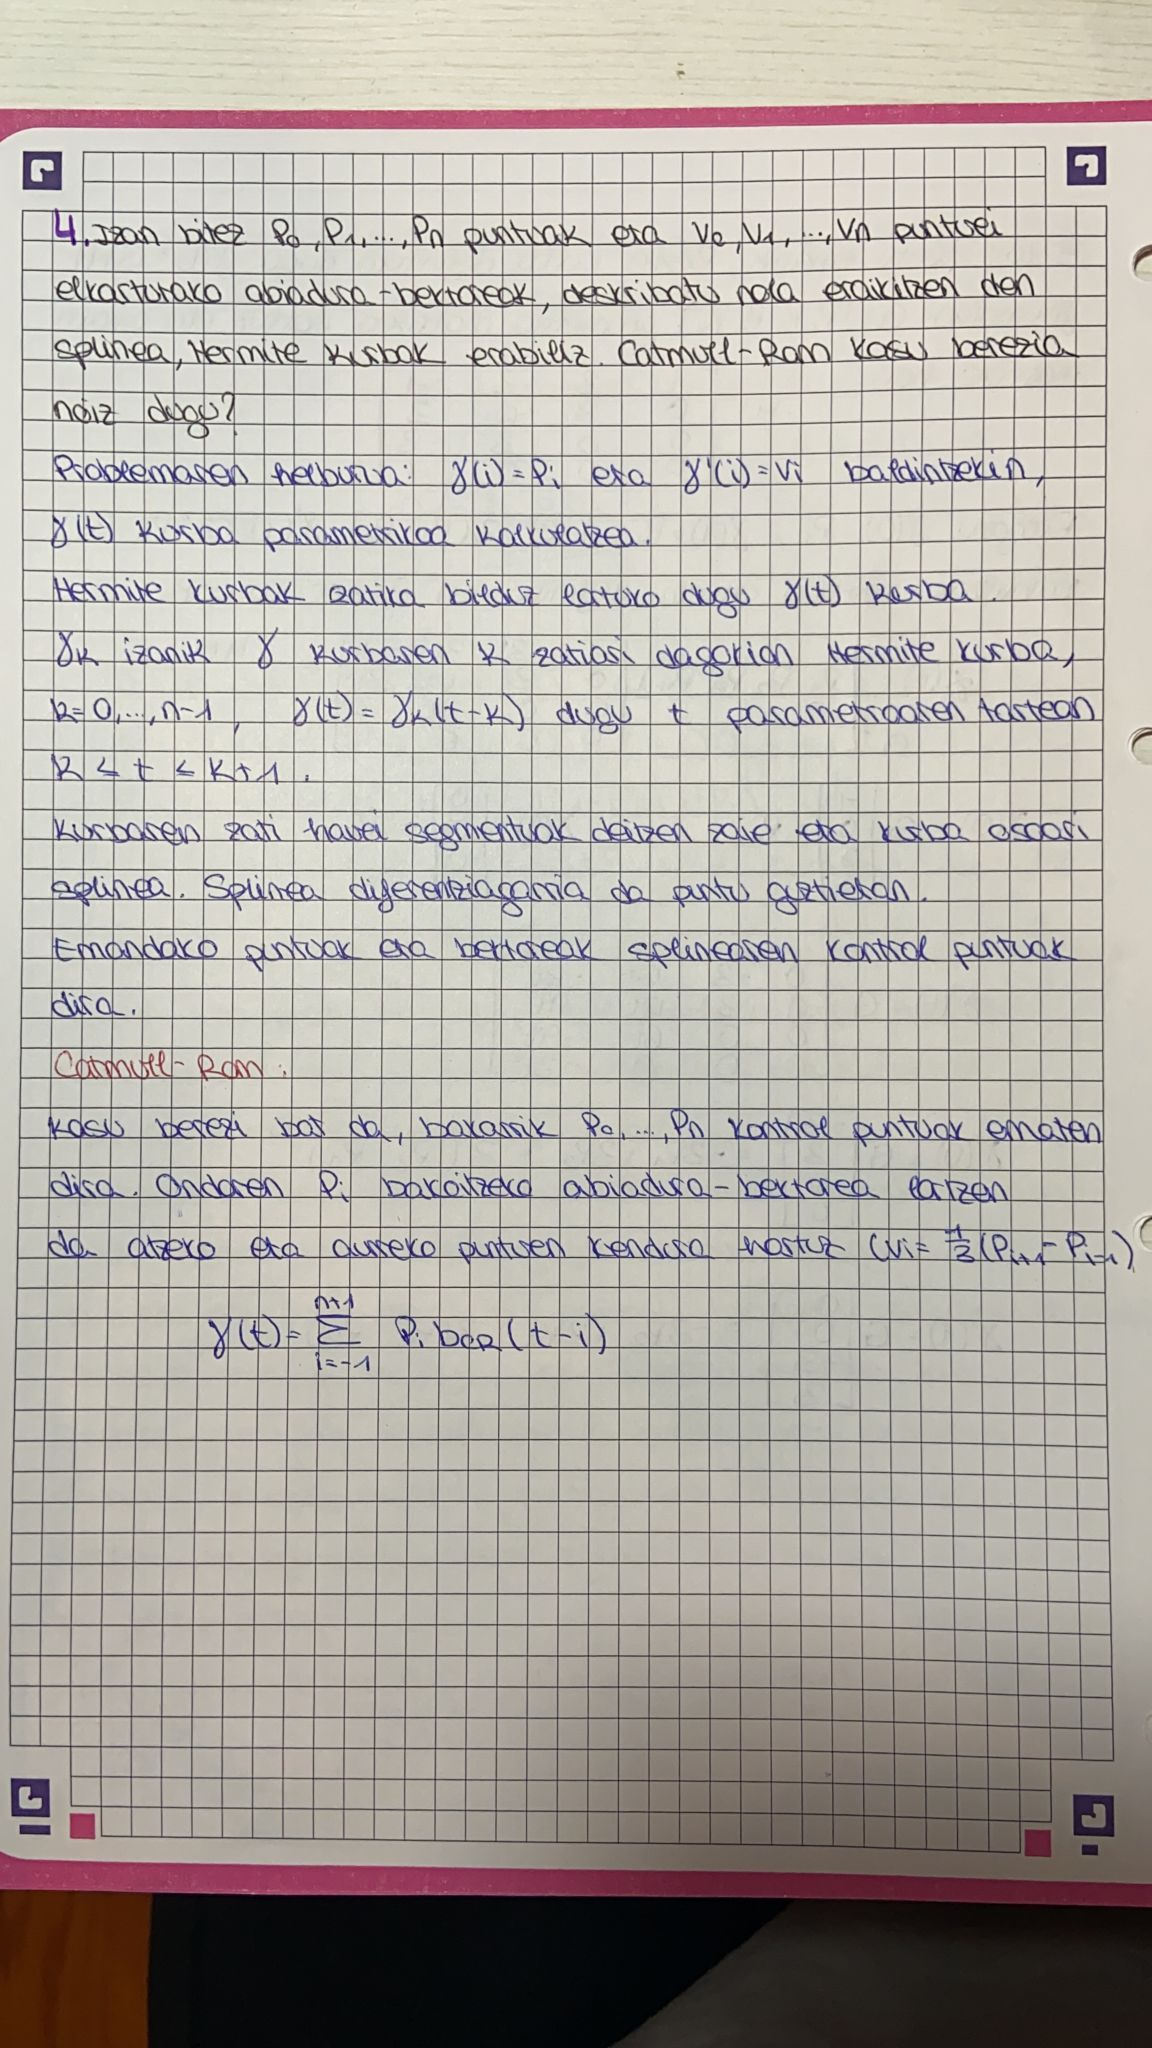 4. Izan bitez P0, P1, ..., Pn puntuak eta V0, V1, ..., Vn puntuei
elkarturako abiadura-bektoreak, deskribatu nola eraikitzen den
splinea, Hermite kurbak erabiliz. Catmull-Rom kasu berezia
noiz dugu?
Problemaren helburua: γ(i) = Pi eta γ'(i) = Vi baldintzekin,
γ(t) kurba parametrikoa kalkulatzea.
Hermite kurbak zatika bilduz lortuko dugu γ(t) kurba.
γk izanik γ kurbaren k zatiari dagokion Hermite kurba,
k=0,...,n-1, γ(t) = γk(t-k) dugu t parametroaren tartean
k ≤ t ≤ k+1.
Kurbaren zati hauei segmentuak deitzen zaie eta kurba osoari
splinea. Splinea diferentziagarria da puntu guztietan.
Emandako puntuak eta bektoreak splinearen kontrol puntuak
dira.
Catmull-Rom:
Kasu berezi bat da, bakarrik P0, ..., Pn kontrol puntuak ematen
dira. Ondoren Pi bakoitzeko abiadura-bektorea lortzen
da atzeko eta aurreko puntuen kendura hartuz (Vi = 1/2 (Pi+1 - Pi-1)
γ(t) = Σ_{i=-1}^{n+1} Pi bCR(t-i)